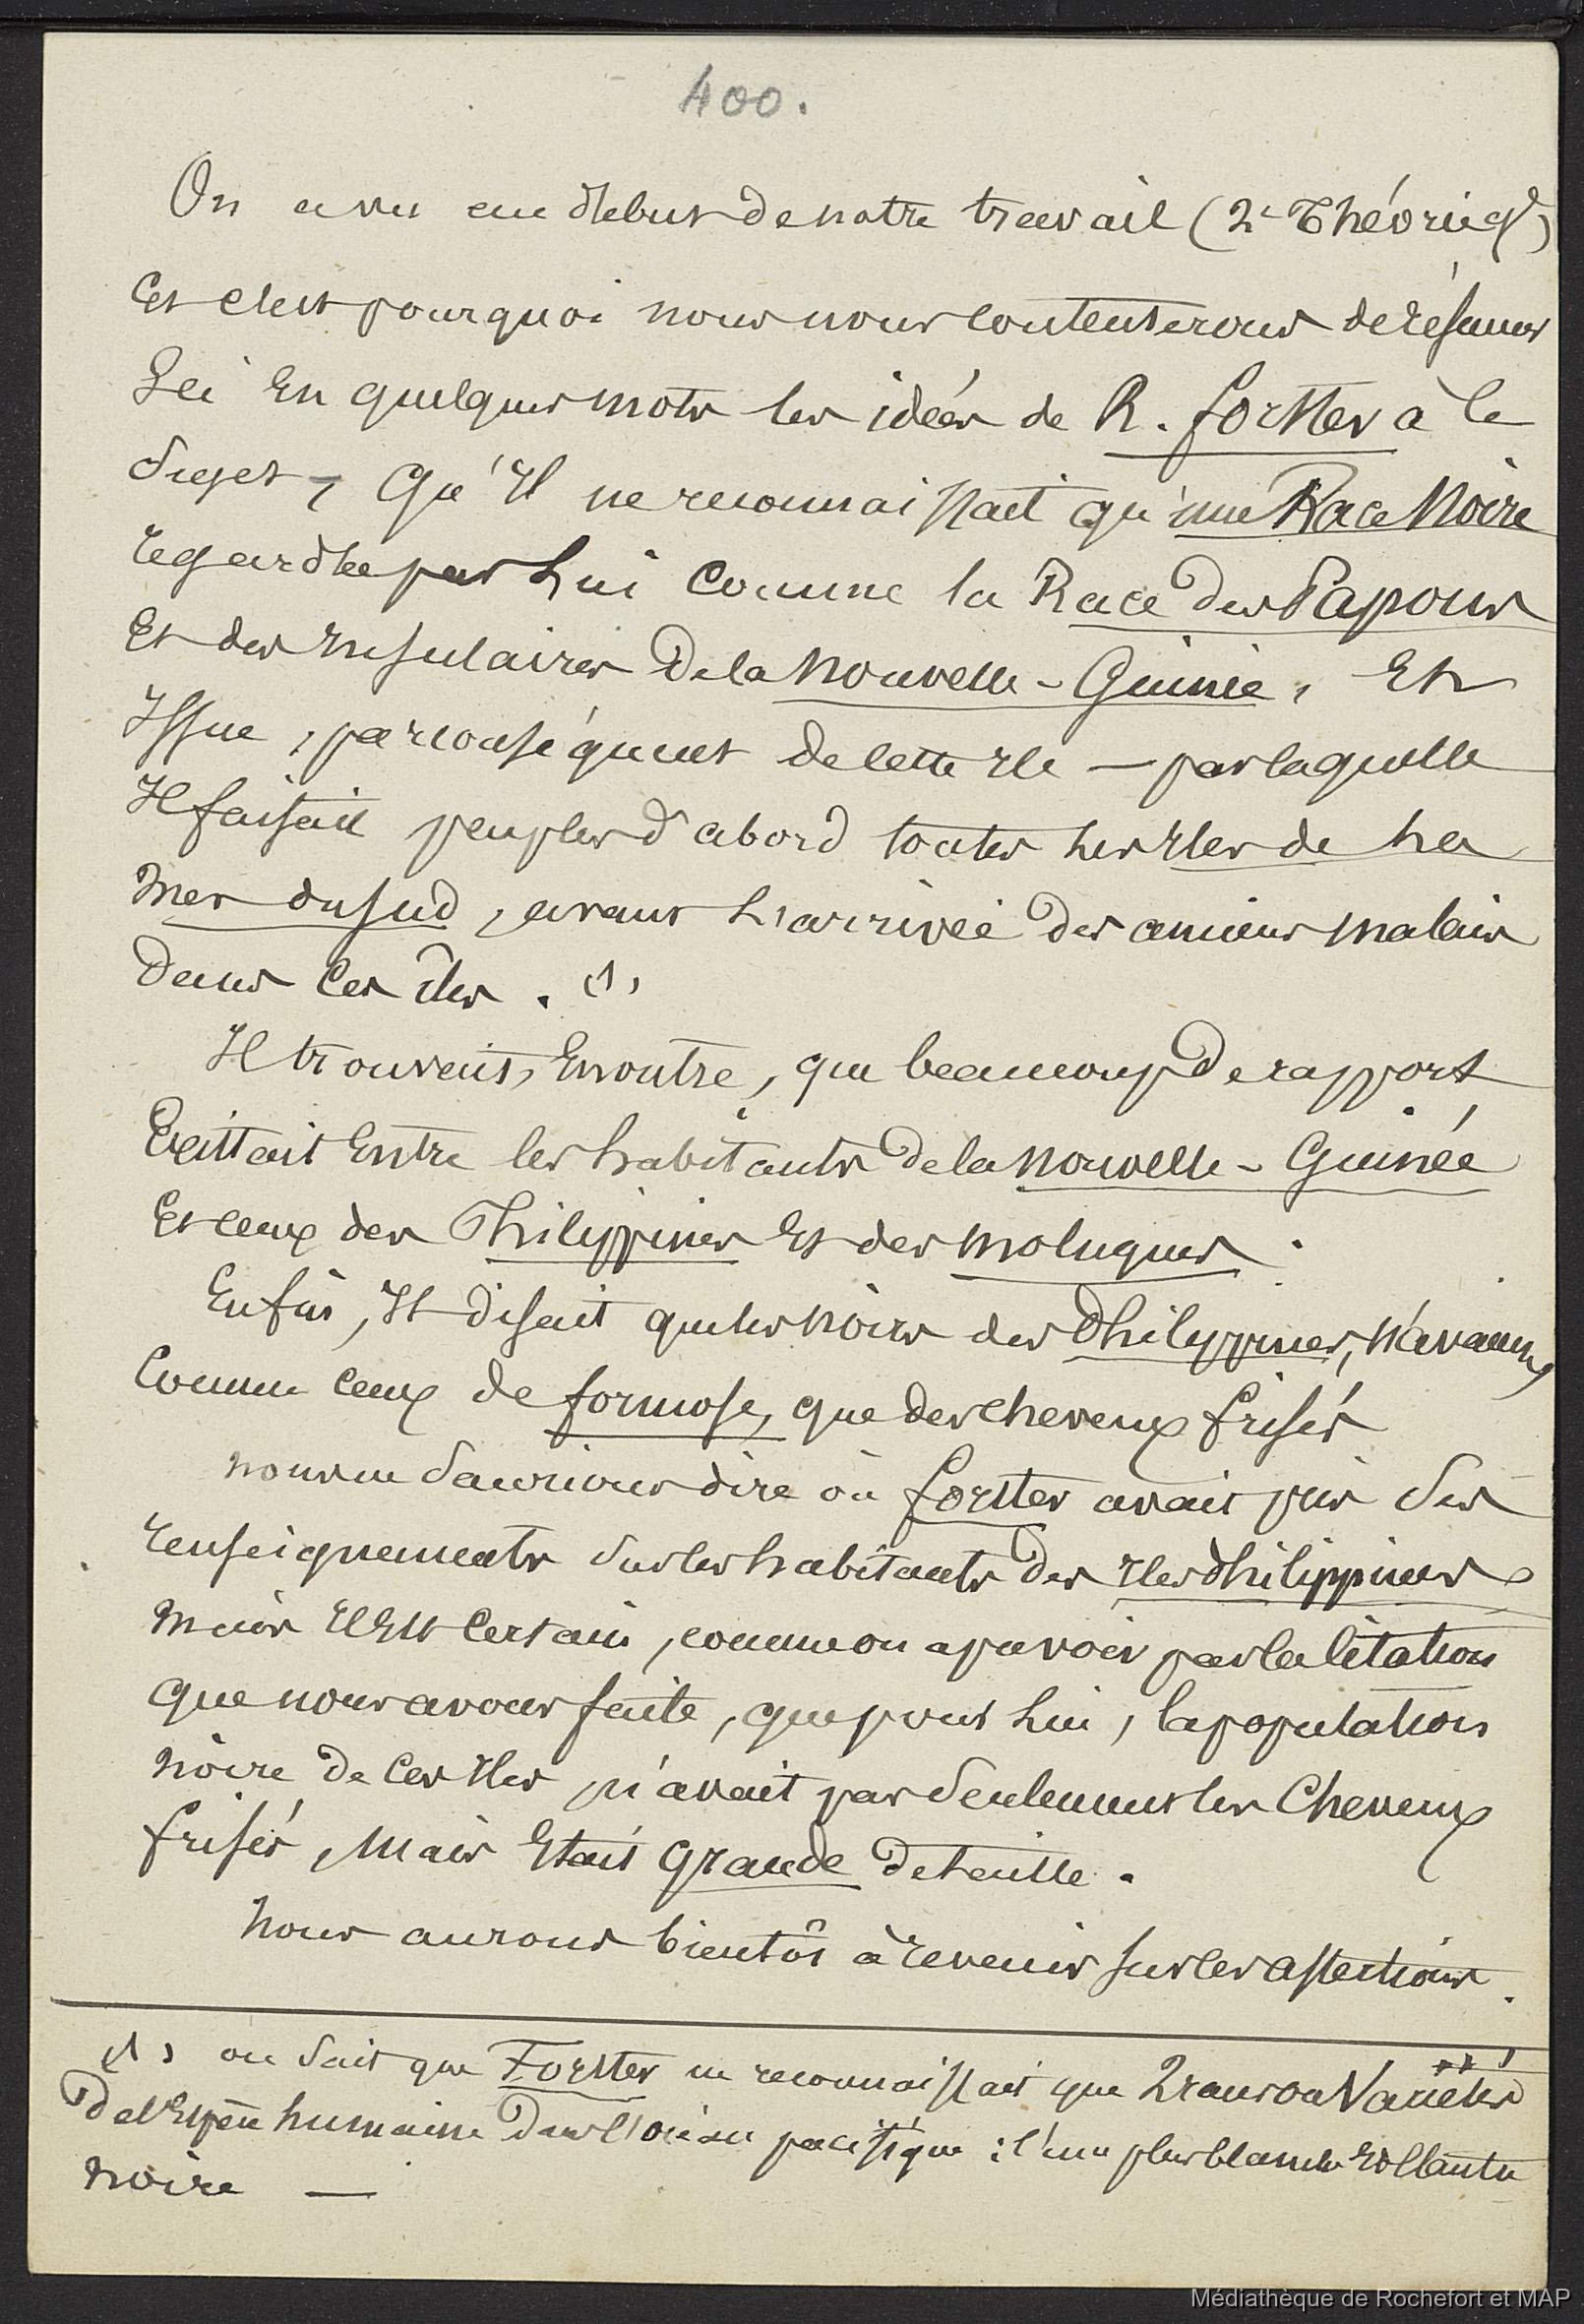 400.
On a vu au début de notre travail (2e Théorie &)
Et c'est pourquoi nous nous contenterons de résumer
Ici En quelques mots les idées de R. forster à ce
Sujet, Qu'Il ne reconnaissait qu'une Race Noire
regardée par Lui Comme la Race des Papous
Et des Insulaires De la Nouvelle-Guinée, Et
Issue, par conséquent de cette Ile — par laquelle
Il faisait peupler d'abord toutes les Iles de la
Mer du sud, avant l'arrivée des anciens Malais
Dans ces îles. (1)
Il trouvait, En outre, que beaucoup De rapport
Existait Entre les habitants de la Nouvelle-Guinée
Et ceux des Philippines Et des Moluques.
Enfin, Il disait que les Noirs des Philippines, N'avaient
Comme ceux de formose, que des cheveux frisés
Nous ne Saurions dire où forster avait pris Ses
renseignements Sur les habitants Des Iles Philippines
Mais Il Est Certain, comme on a pu voir par la Citation
Que nous avons faite, que pour Lui, la population
Noire De Ces Iles N'avait pas Seulement les Cheveux
frisés, Mais Etait Grande De taille.
Nous aurons bientôt à revenir sur ces assertions.
(1) on Sait que Forster ne reconnaissait que 2 races ou Variétés
De l'Espèce humaine Dans l'océan pacifique : l'une plus blanche Et l'autre
Noire —
Médiathèque de Rochefort et MAP